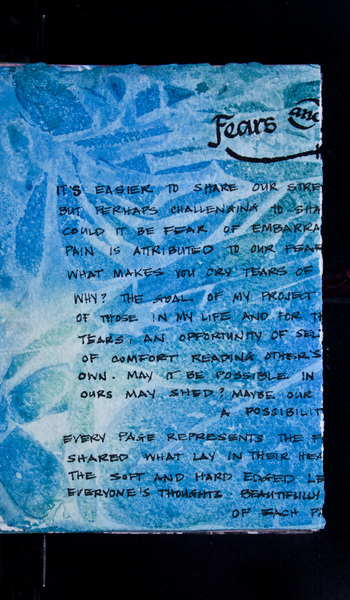 Fears and
IT'S EASIER TO SHARE OUR STRE
BUT PERHAPS CHALLENGING TO SHA
COULD IT BE FEAR OF EMBARRA
PAIN IS ATTRIBUTED TO OUR FEAR
WHAT MAKES YOU CRY TEARS OF
WHY? THE GOAL OF MY PROJECT
OF THOSE IN MY LIFE AND FOR TH
TEARS, AN OPPORTUNITY OF SEL
OF COMFORT READING OTHER'S
OWN. MAY IT BE POSSIBLE IN
OURS MAY SHED? MAYBE OUR
A POSSIBILIT
EVERY PAGE REPRESENTS THE F
SHARED WHAT LAY IN THEIR HEA
THE SOFT AND HARD EDGED LE
EVERYONE'S THOUGHTS BEAUTIFULLY
OF EACH PA